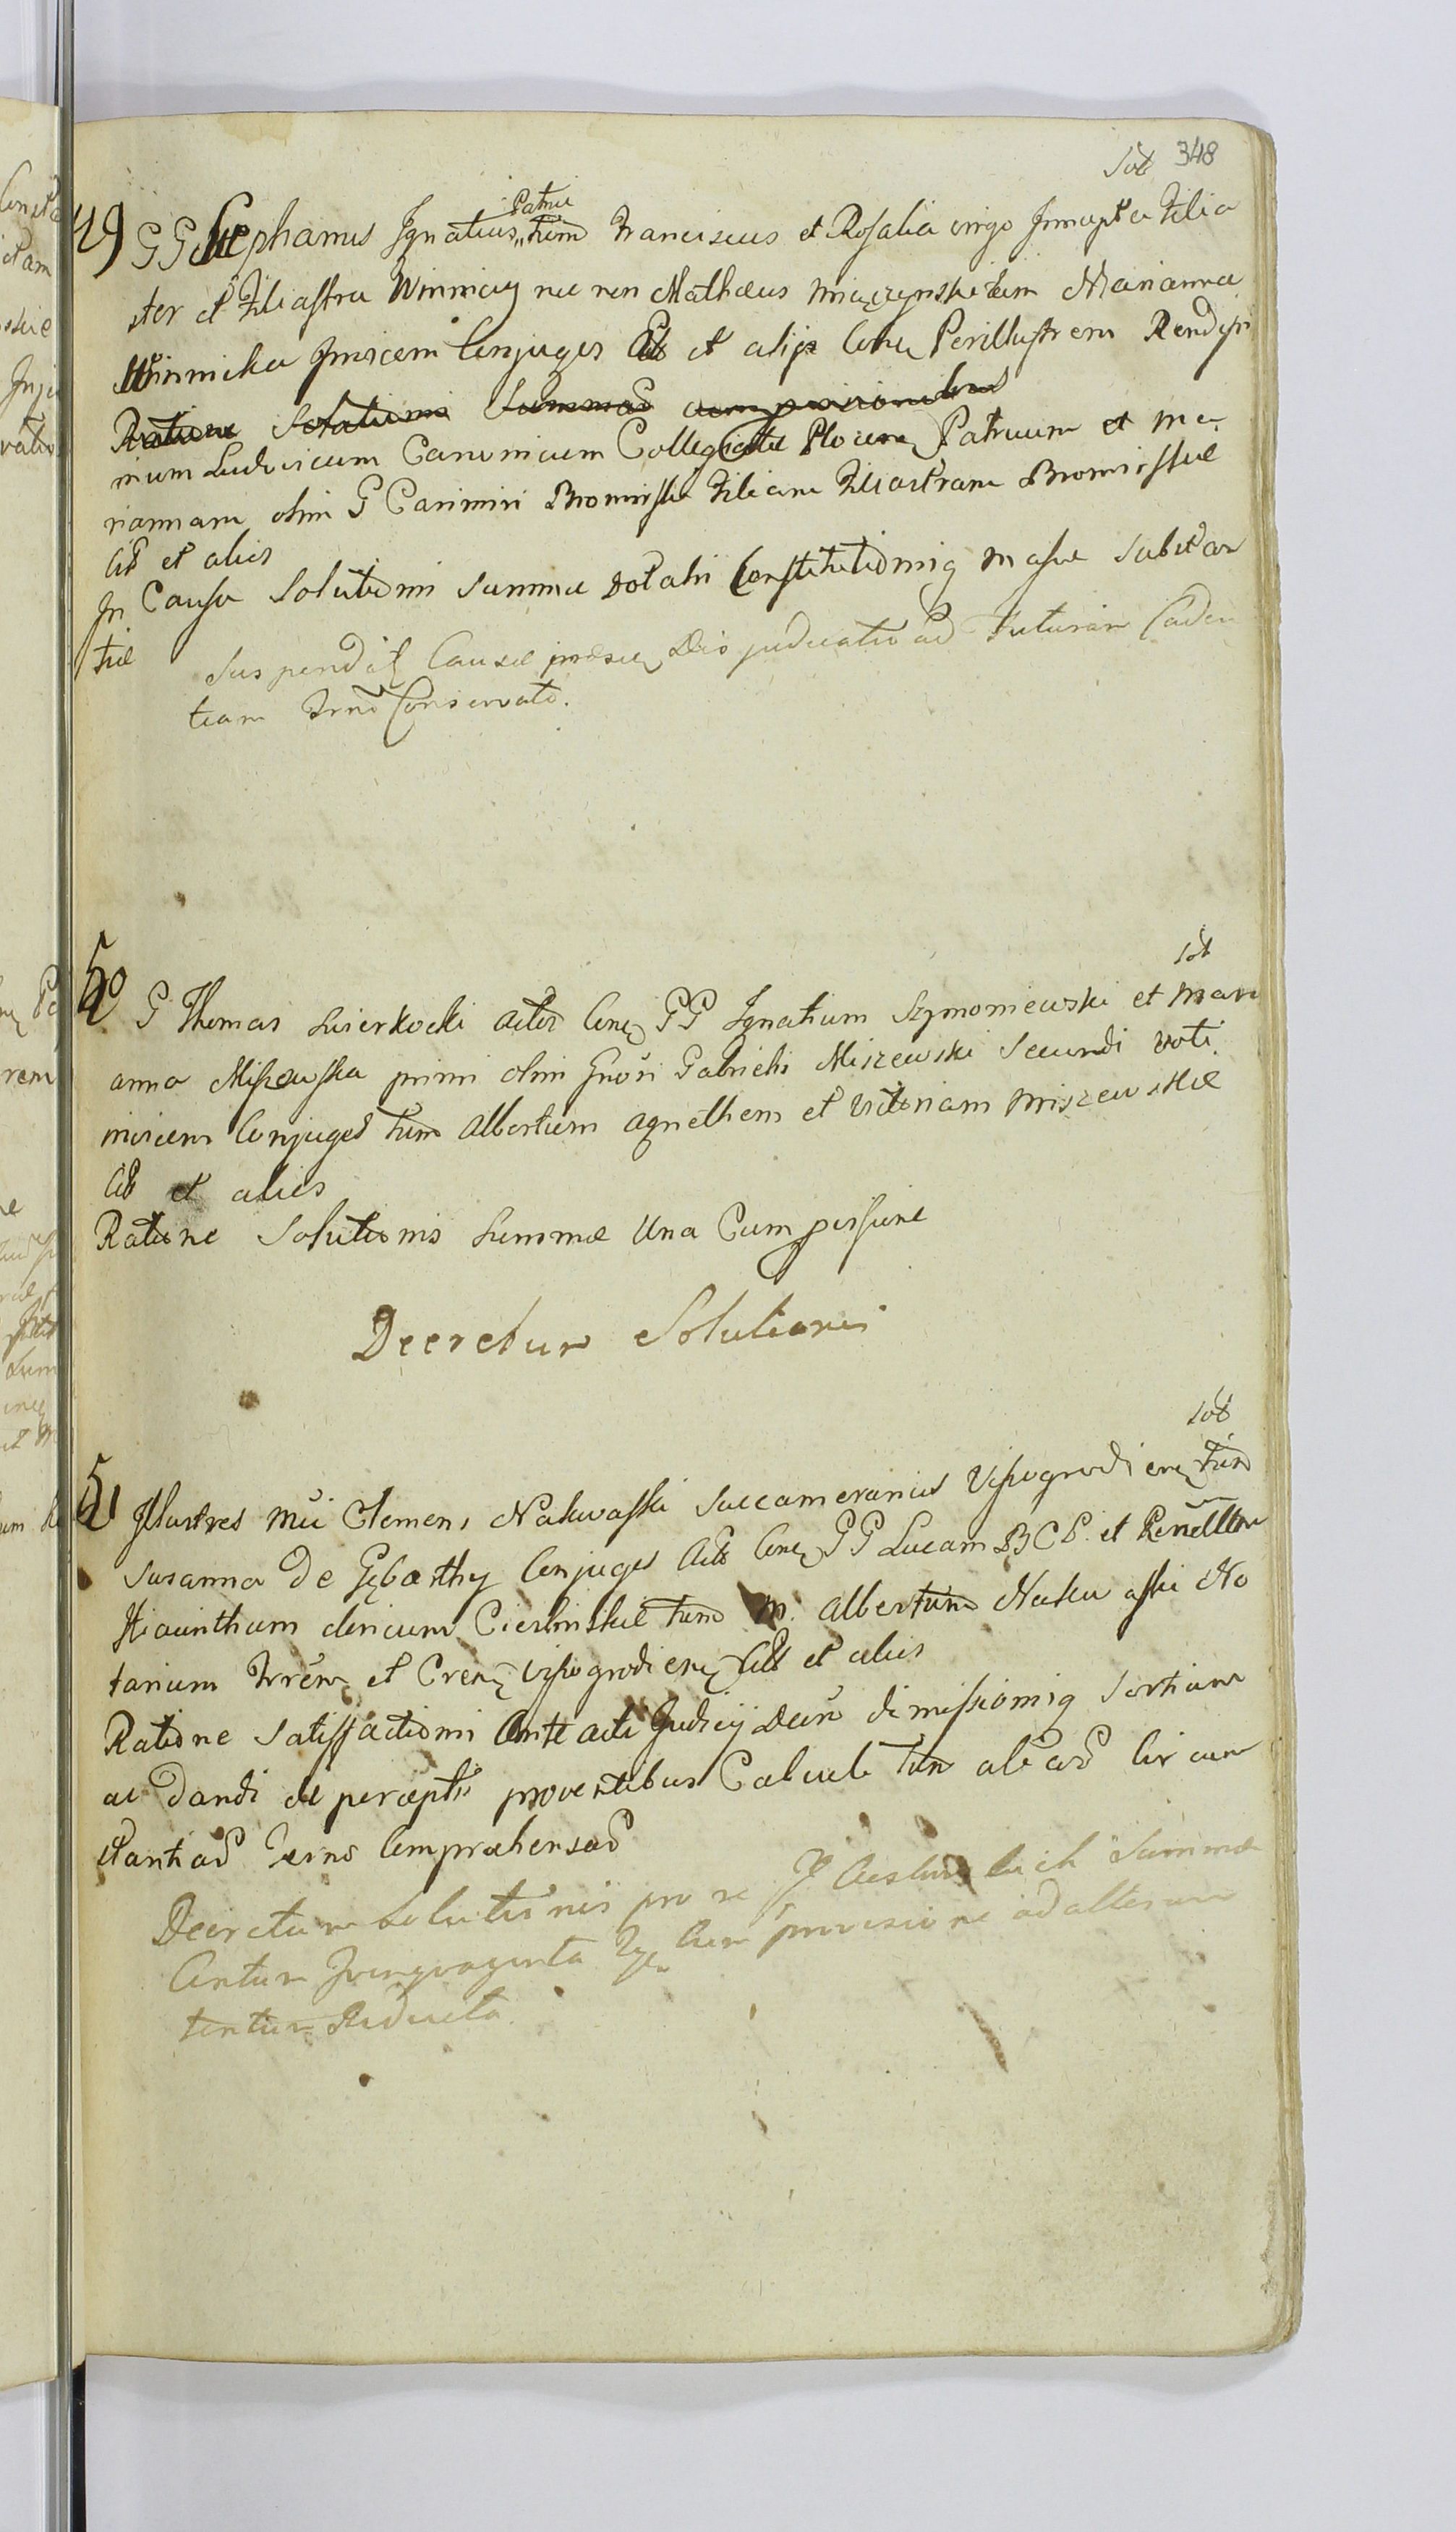 Sol 348
49 GG Stephanus Ignatius Patrui tum Franciscus et Rosalia virgo Innupta Filia
ster et Filiastra Winniccy nec non Mathæus Miączynski tum Marianna
Winnicka Invicem Conjuges Act et alij Con Perillustrem Rendissi
Ratione Solutionis Summas cum provisionibus
mum Ludovicum Canonicum Collegiatæ Plocen Patruum et Ma
riannam olim G Casimiri Bromirski Filiam Filiastram Bromirskie
Cit et alios
In Causa Solutionis Summæ Dotalis Constitutionisq Massæ Substan
tiæ
Suspendit Causæ præsen Dijudicatio ad Futuram Caden
tiam Trno Conservato.
Sol
50 G Thomas Swierkocki Actor Con GG Ignatium Szymoniewski et Mari
anna Miszewska primi olim Gnosi Gabrielis Miszewski Secundi voti
invicem Conjuges tum Albertum Agnethem et Victoriam Miszewskie
Cit et alios
Ratione Solutionis Summæ Una Cum pensione
Decretum Solutionis
Sol
51 Illustres Mci Clemens Nakwaski Succamerarius Vissogrodien tum
Susanna De Gębarthy Conjuges Act Con GG Lucam B C P. et Renellum
Hiacinthum clericum Cieslinskie tum M. Albertum Nakwaski No
tarium Trrem et Cren Vissogrodien Cit et alios
Ratione Satisfactionis Ante acti Judicij Decre dimissionisq Sortium
ac Dandi de perceptis proventibus Calculi tum alias Circum
stantias Terno Comprehensas
Decretum Solutionis pro re Summæ
Centum Quinquaginta Cum provisione ad alteram
tantum Reducta